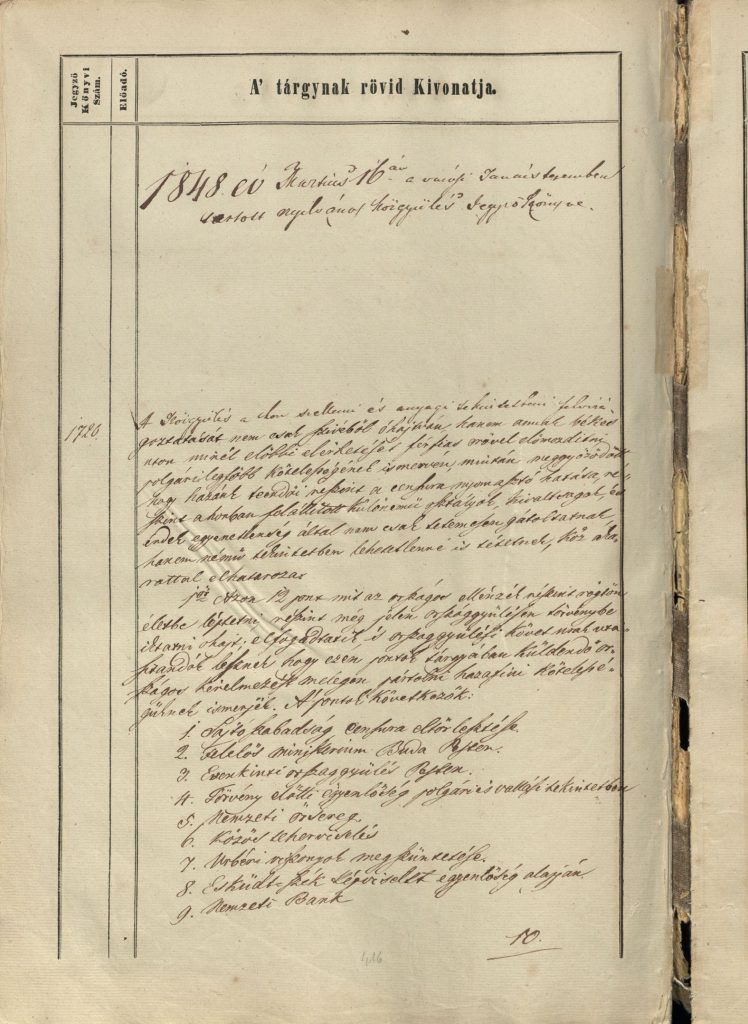 Jegyző
Könyvi
Szám.
Előadó.
A' tárgynak rövid Kivonatja.
1848. év Martius 16án a városi Tanács teremben
tartott nyilvános közgyűlés Jegyzőkönyve.
1720.
A Közgyűlés a hon szellemi és anyagi tekintetbeni felvirá-
goztatását nem csak szivéből óhajtván, hanem annak békés
uton minél előbbi elérhetését férfias erővel előmozditni
polgári legfőbb kötelességének ismervén, miután meggyőződött
hogy hazánk teendői részint a censura nyomasztó hatása, ré-
szint a honban felállitott különnemű osztályok, kiváltságok, és
érdek egyenetlenség által nem csak tetemesen gátoltatnak
hanem némű tekintetben lehetetlenné is tétetnek, köz aka-
rattal elhatározza
1ör Azon 12 pont mit az országos ellenzék részint rögtön
életbe léptetni részint még jelen országgyűlésen törvénybe
iktatni óhajt; elfogadtatik és országgyűlési követ urak uta-
sitandók lesznek hogy ezen pontok tárgyában küldendő or-
szágos kérelmezést melegen pártolni hazafiúi kötelessé-
güknek ismerjék. A' pontok következők:
1. Sajtó szabadság censura eltörlesztése.
2. Felelős ministerium Buda Pesten.
3. Evenkinti országgyűlés Pesten.
4. Törvény előtti egyenlőség polgári és vallási tekintetben
5. Nemzeti őrsereg.
6. Közös teherviselés
7. Urbéri viszonyok megszüntetése.
8. Esküdt-szék képviselet egyenlőség alapján
9. Nemzeti Bank
10.
416